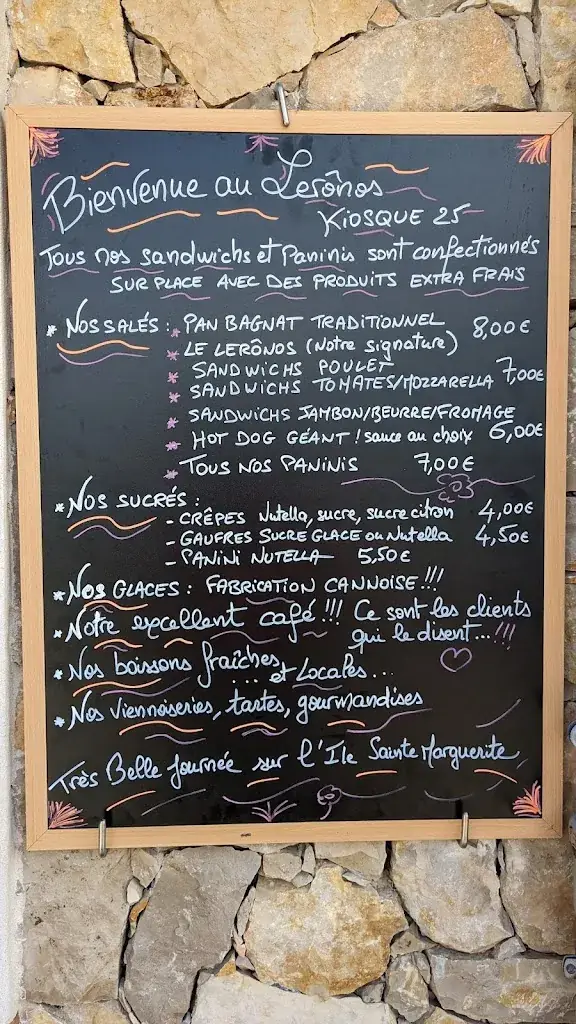 Bienvenue au Lerônos
KIOSQUE 25
Tous nos sandwichs et Paninis sont confectionnés
SUR PLACE AVEC DES PRODUITS EXTRA FRAIS
* NOS SALÉS : * PAN BAGNAT TRADITIONNEL 8,00€
* LE LERÔNOS (Notre signature)
* SANDWICHS POULET
* SANDWICHS TOMATES/MOZZARELLA 7,00€
* SANDWICHS JAMBON/BEURRE/FROMAGE
* HOT DOG GÉANT ! sauce au choix 6,00€
* TOUS NOS PANINIS 7,00€
* NOS SUCRÉS :
- CRÊPES Nutella, sucre, sucre citron 4,00€
- GAUFRES SUCRE GLACE ou Nutella 4,50€
- PANINI NUTELLA 5,50€
* NOS GLACES : FABRICATION CANNOISE !!!
* Notre excellent café !!! Ce sont les clients
qui le disent... !!!
* Nos boissons fraîches
... et Locales ...
* Nos Viennoiseries, tartes, gourmandises
Très Belle Journée sur l'Ile Sainte Marguerite